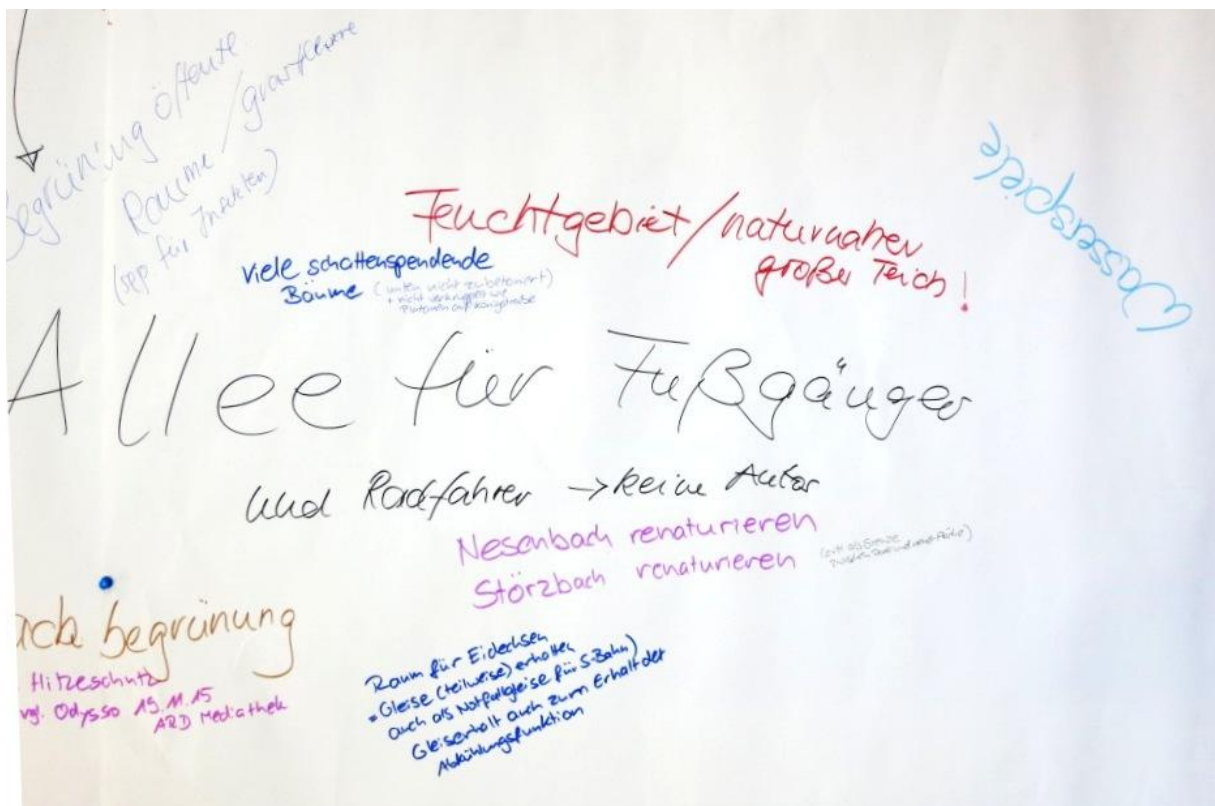 Begrünung öffentl
Räume / grasfläche
(sep für Insekten)
Wasserspiele
Feuchtgebiet/naturnaher
großer Teich!
viele schattenspendende
Bäume (unten nicht zubetoniert)
+ nicht verkrüppelt wie
Platanen auf Königstraße
Allee für Fußgänger
und Radfahrer → keine Autos
Nesenbach renaturieren
Störzbach renaturieren (evtl. als Grenze
zwischen
ach begrünung
Hitzeschutz
vgl. Odysso 19.11.15
ARD Mediathek
Raum für Eidechsen
= Gleise (teilweise) erhalten
auch als Notfallgleise für S-Bahn)
Gleiserhalt auch zum Erhalt der
Abkühlungsfunktion